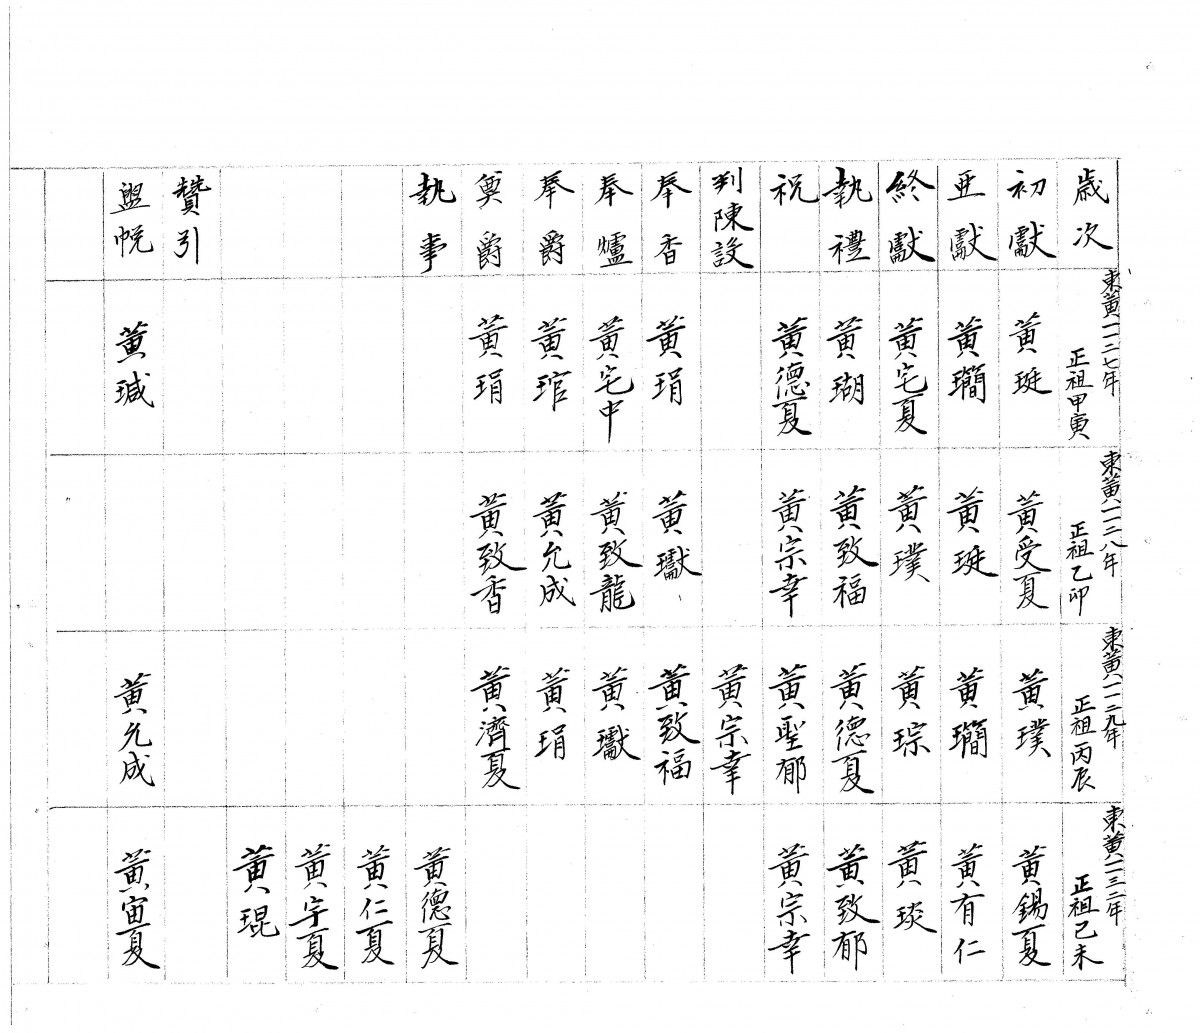 歲次
初獻
亞獻
終獻
執禮
祝
判陳設
奉香
奉爐
奉爵
奠爵
執事
贊引
盥帨
東黃一一二七年
正祖甲寅
黃珽
黃瓓
黃宅夏
黃瑚
黃德夏
黃琄
黃宅中
黃琯
黃琄
黃瑊
東黃一一二八年
正祖乙卯
黃受夏
黃珽
黃璞
黃致福
黃宗幸
黃瓛
黃致龍
黃允成
黃致香
東黃一一二九年
正祖丙辰
黃璞
黃琮
黃德夏
黃聖郁
黃宗幸
黃致福
黃瓛
黃琄
黃濟夏
黃允成
東黃一一三二年
正祖己未
黃錫夏
黃有仁
黃琰
黃致郁
黃宗幸
黃德夏
黃仁夏
黃宇夏
黃琨
黃宙夏